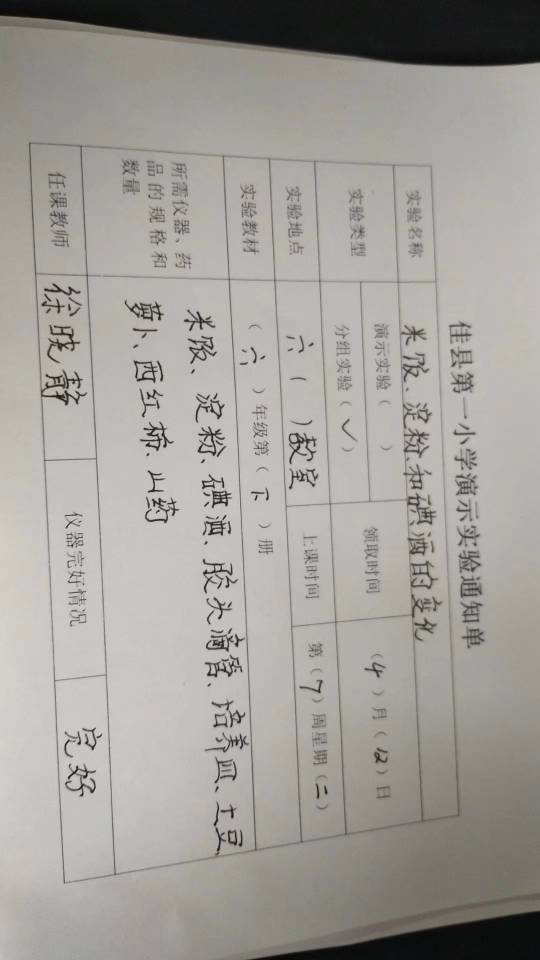 佳县第一小学演示实验通知单
实验名称 米饭、淀粉和碘酒的变化
实验类型 演示实验（ ） 领取时间 （4）月（12）日
分组实验（✓）
实验地点 六（ ）教室 上课时间 第（7）周星期（二）
实验教材 （六）年级第（下）册
所需仪器、药品的规格和数量
米饭、淀粉、碘酒、胶头滴管、培养皿、土豆、
萝卜、西红柿、山药
任课教师 徐晓静 仪器完好情况 完好